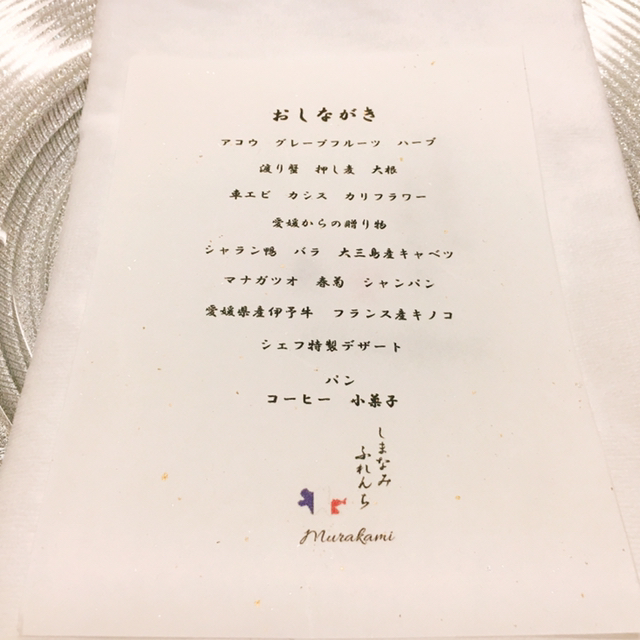 おしながき
アコウ グレープフルーツ ハーブ
渡り蟹 押し麦 大根
車エビ カシス カリフラワー
愛媛からの贈り物
シャラン鴨 バラ 大三島産キャベツ
マナガツオ 春菊 シャンパン
愛媛県産伊予牛 フランス産キノコ
シェフ特製デザート
パン
コーヒー 小菓子
しまなみ
ふれんち
Murakami